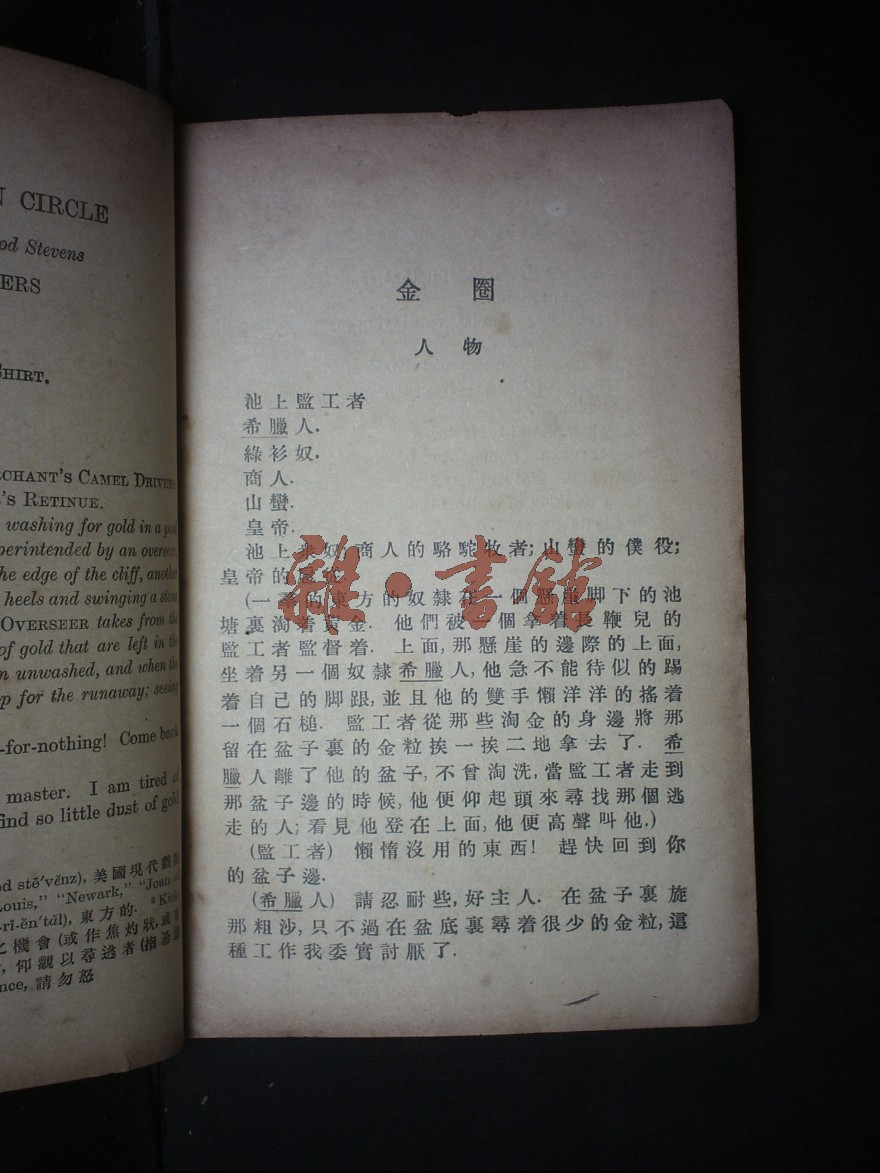 N CIRCLE
od Stevens
ERS
SHIRT.
CHANT'S CAMEL DRIVERS
'S RETINUE.
washing for gold in a pool
perintended by an overseer,
he edge of the cliff, another
heels and swinging a stone
OVERSEER takes from the
of gold that are left in the
n unwashed, and when the
p for the runaway; seeing
-for-nothing! Come back
master. I am tired of
find so little dust of gold
od stē'vĕnz), 美國現代戲
Louis," "Newark," "Joan
-rī-ĕn'tăl), 東方的.
之機會 (或作焦灼狀,
, 仰觀以尋逃者 (指希臘
nce, 請勿怒
金圈
人物
池上監工者
希臘人.
綠衫奴.
商人.
山蠻.
皇帝.
池上衆奴; 商人的駱駝牧者; 山蠻的僕役;
皇帝的
(一羣的東方的奴隸在一個懸崖脚下的池
塘裏淘着黃金. 他們被一個拿着長鞭兒的
監工者監督着. 上面, 那懸崖的邊際的上面,
坐着另一個奴隸希臘人, 他急不能待似的踢
着自己的脚跟, 並且他的雙手懶洋洋的搖着
一個石槌. 監工者從那些淘金的身邊將那
留在盆子裏的金粒挨一挨二地拿去了. 希
臘人離了他的盆子, 不曾淘洗, 當監工者走到
那盆子邊的時候, 他便仰起頭來尋找那個逃
走的人; 看見他登在上面, 他便高聲叫他.)
(監工者) 懶惰沒用的東西! 趕快回到你
的盆子邊.
(希臘人) 請忍耐些, 好主人. 在盆子裏旋
那粗沙, 只不過在盆底裏尋着很少的金粒, 這
種工作我委實討厭了.
雜·書館